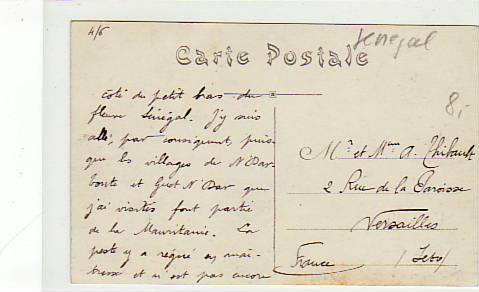 4/6
Senegal
Carte Postale
8,-
côté du petit bras du
fleuve Sénégal. J'y suis
allé, par conséquent, puis-
que les villages de N'Dar-
toute et Guet N'Dar que
j'ai visités font partie
de la Mauritanie. La
peste y a régné en maî-
tresse et n'est pas encore
Mr et Mme A. Thibault
2 Rue de la Paroisse
Versailles
France (Seto)